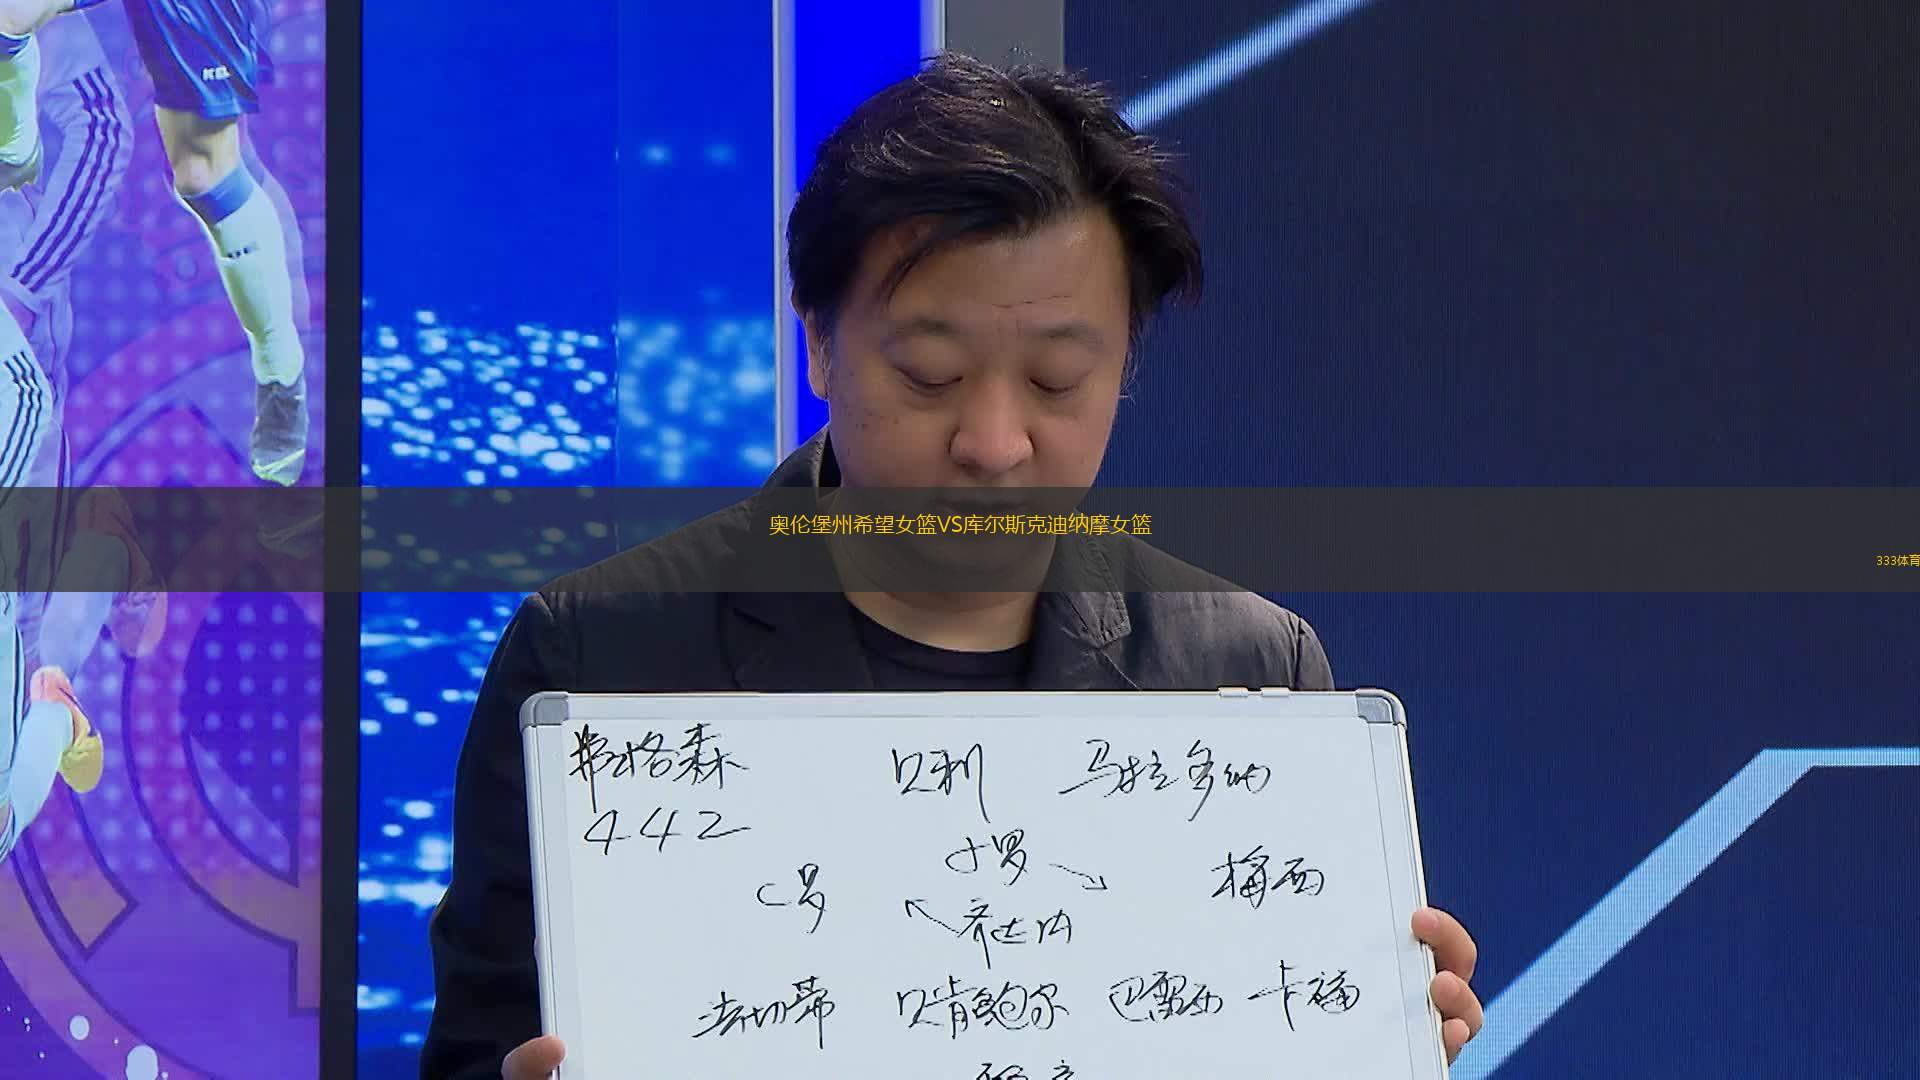 奥伦堡州希望女篮VS库尔斯克迪纳摩女篮
333体育
弗格森 贝利 马拉多纳
442
C罗 小罗 梅西
齐达内
法切蒂 贝肯鲍尔 巴雷西 卡福